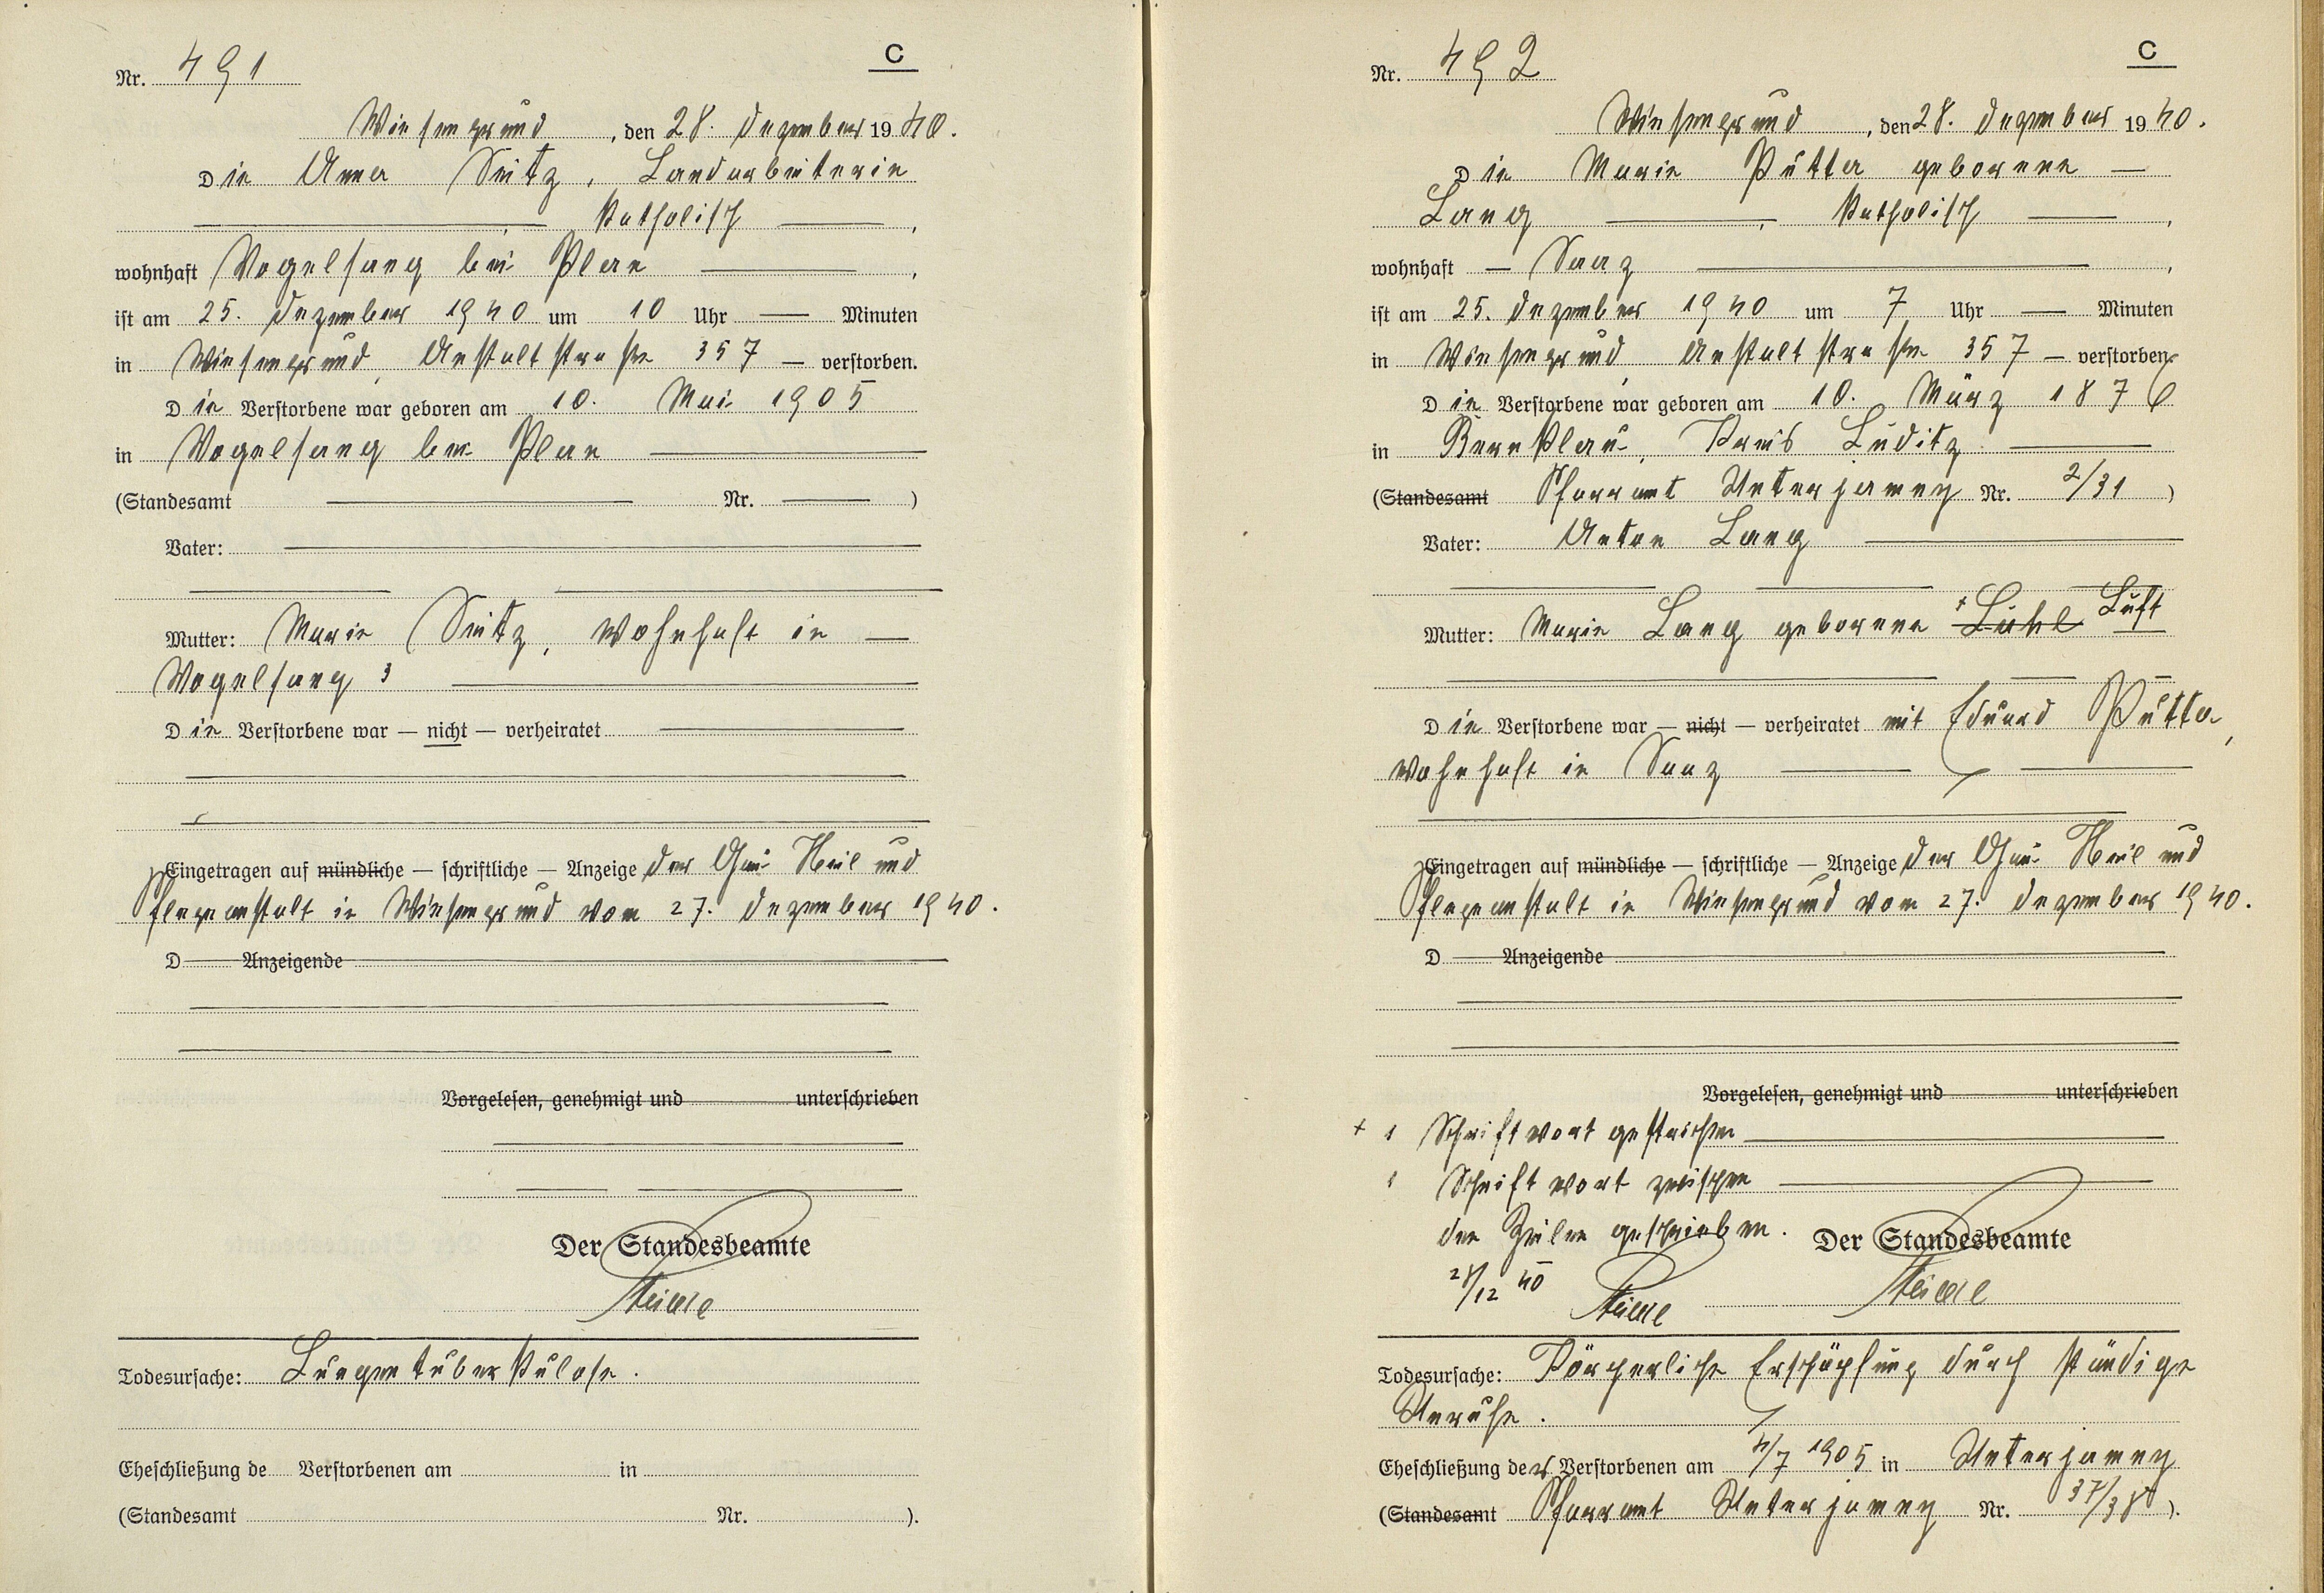 C
Nr. 491
Wiesengrund, den 28. Dezember 1940.
Die Anna Seitz, Landarbeiterin
katholisch,
wohnhaft Vogelsang bei Plan,
ist am 25. Dezember 1940 um 10 Uhr — Minuten
in Wiesengrund, Anstaltstraße 357 — verstorben.
Die Verstorbene war geboren am 10. Mai 1905
in Vogelsang bei Plan
(Standesamt — Nr. — )
Vater: —
Mutter: Marie Seitz, wohnhaft in —
Vogelsang 3
Die Verstorbene war — nicht — verheiratet
Eingetragen auf mündliche — schriftliche — Anzeige der Gau Heil und
Pflegeanstalt in Wiesengrund vom 27. Dezember 1940.
D Anzeigende
Vorgelesen, genehmigt und unterschrieben
Der Standesbeamte
Todesursache: Lungentuberkulose.
Eheschließung de Verstorbenen am in
(Standesamt Nr. ).
C
Nr. 492
Wiesengrund, den 28. Dezember 1940.
Die Marie Putta geborene —
Lang, katholisch,
wohnhaft — Saaz,
ist am 25. Dezember 1940 um 7 Uhr — Minuten
in Wiesengrund, Anstaltstraße 357 — verstorben.
Die Verstorbene war geboren am 10. März 1876
in Bernklau, Kreis Luditz
(Standesamt Pfarramt Unterjamny Nr. 2/31 )
Vater: Anton Lang
Mutter: Marie Lang geborene + Luhl Luft
Die Verstorbene war — nicht — verheiratet mit Eduard Putta,
wohnhaft in Saaz
Eingetragen auf mündliche — schriftliche — Anzeige der Gau Heil und
Pflegeanstalt in Wiesengrund vom 27. Dezember 1940.
D Anzeigende
Vorgelesen, genehmigt und unterschrieben
+ 1 Schriftwort gestrichen
1 Schriftwort zwischen
den Zeilen geschrieben.
Der Standesbeamte
28/12 40
Todesursache: Körperliche Erschöpfung durch ständige
Unruhe.
Eheschließung der Verstorbenen am 4/7 1905 in Unterjamny
(Standesamt Pfarramt Unterjamny Nr. 37/38 ).